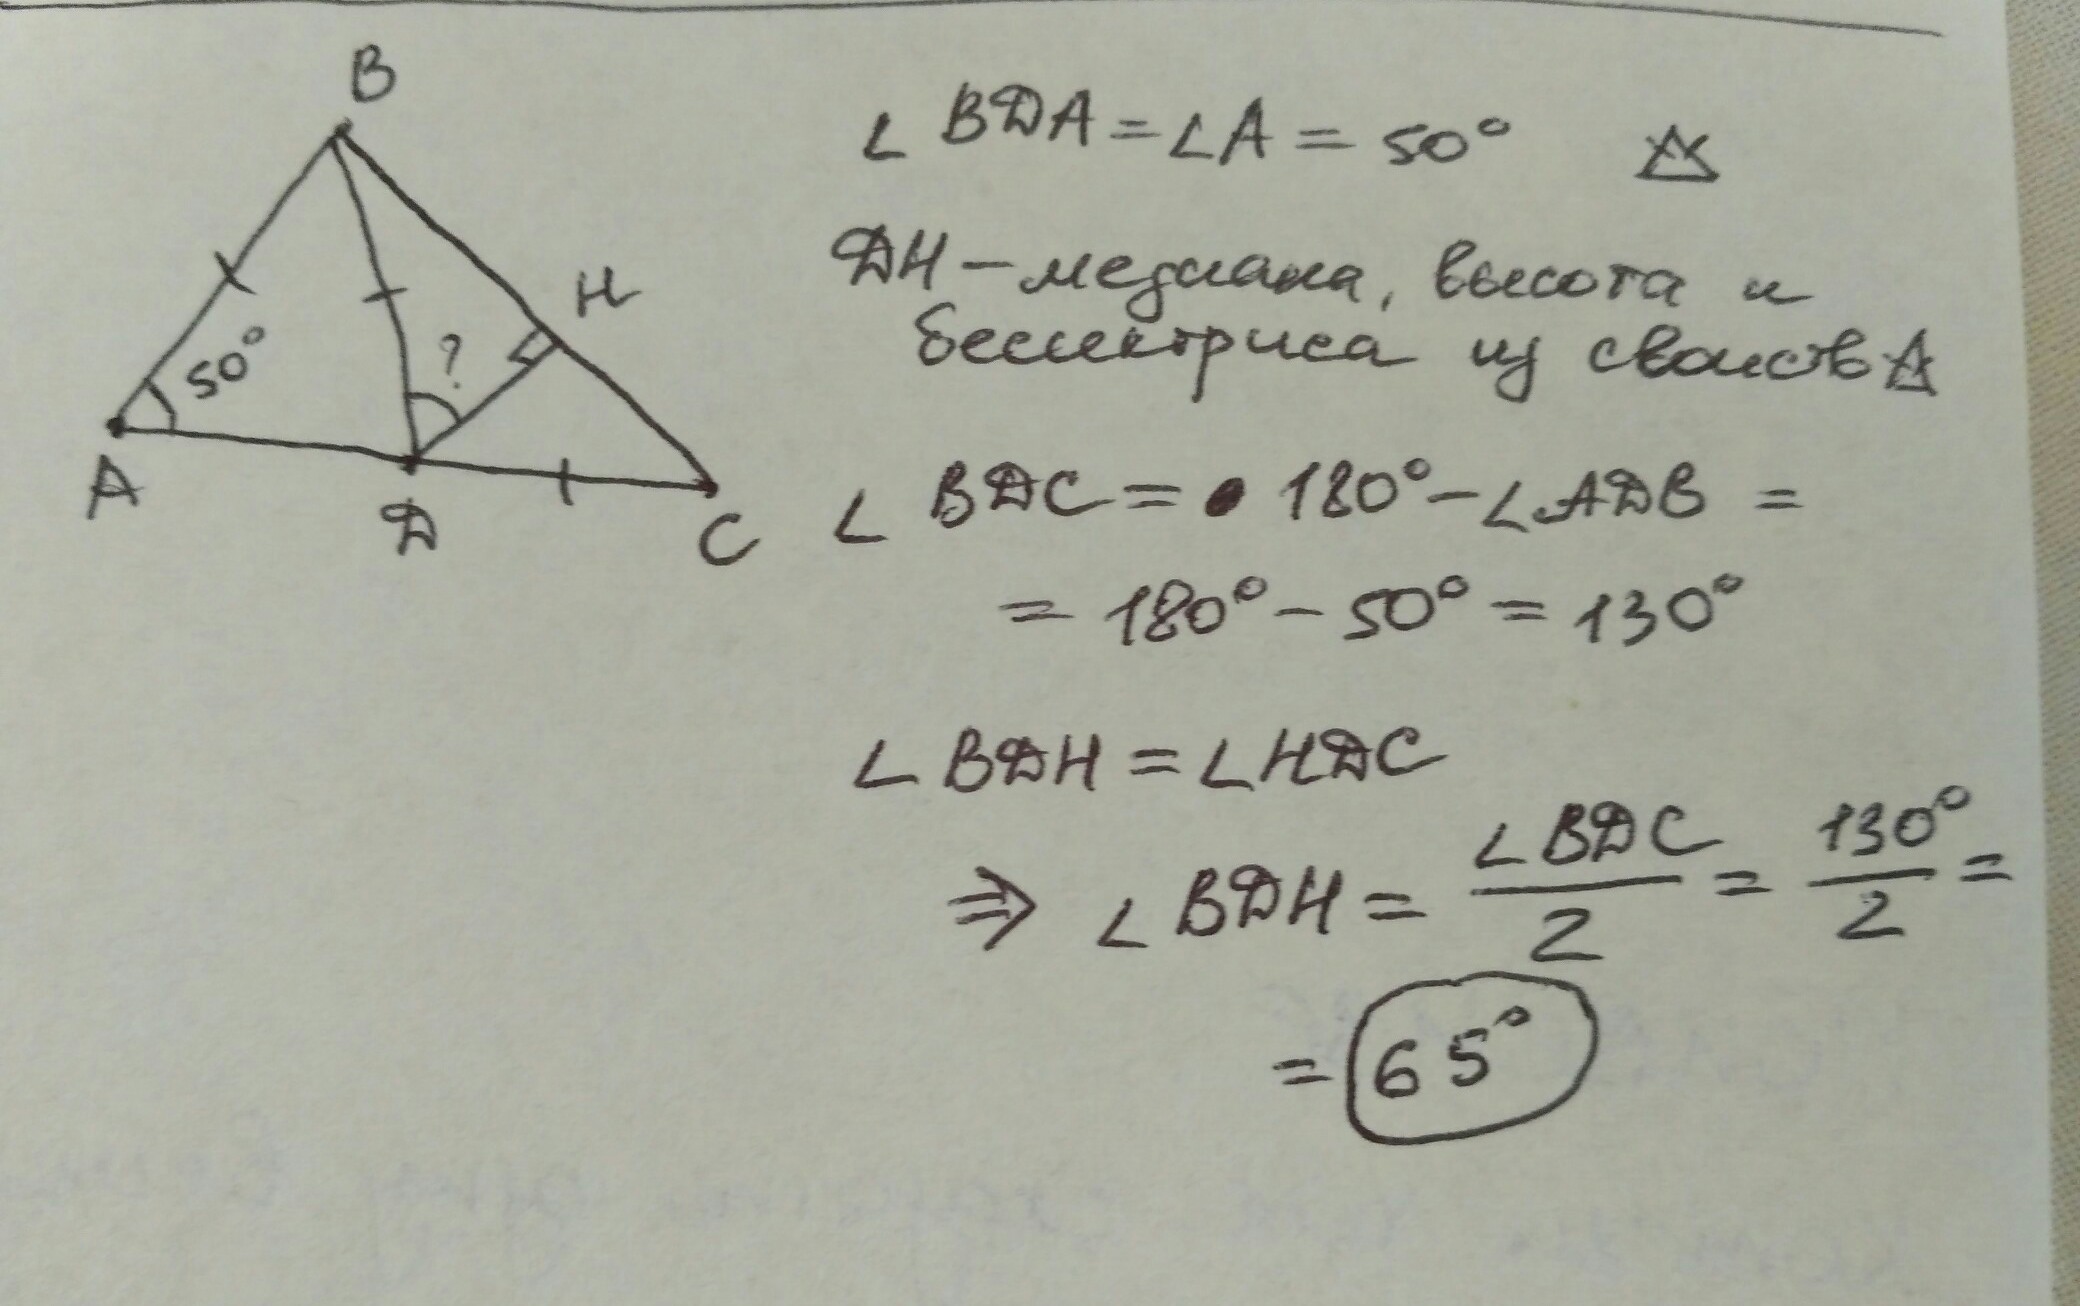 B
H
?
50°
A
D
C
∠ BDA = ∠A = 50°
DH – медиана, высота и
бессектриса из своиств
∠ BDC = 180° – ∠ADB =
= 180° – 50° = 130°
∠ BDH = ∠HDC
⇒ ∠ BDH = ∠BDC / 2 = 130° / 2 =
= 65°